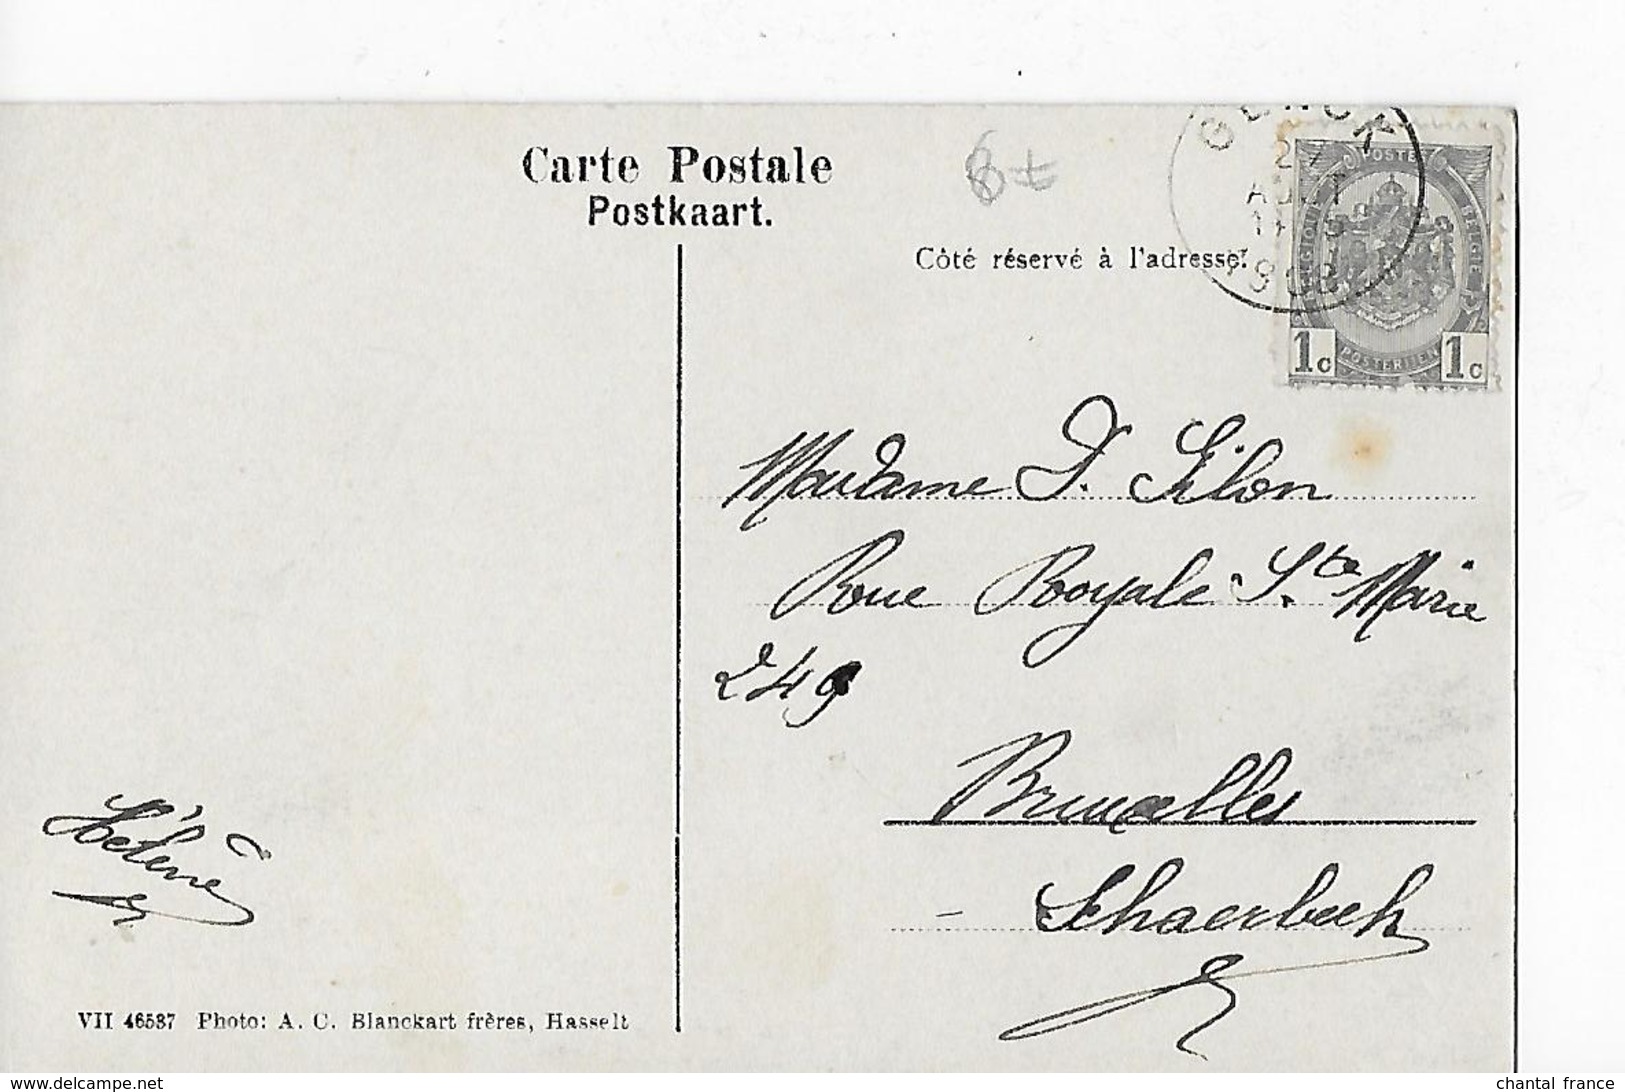 Carte Postale
Postkaart.
8
Côté réservé à l'adresse.
GENCK
27
AOUT
1908
POSTE
BELGIQUE
BELGIE
1c POSTERIJEN 1c
Madame D. Silon
Rue Royale Ste Marie
249
Bruxelles
Schaerbeek
Hélène
VII 46537 Photo: A. C. Blanckart frères, Hasselt
www.delcampe.net
chantal france